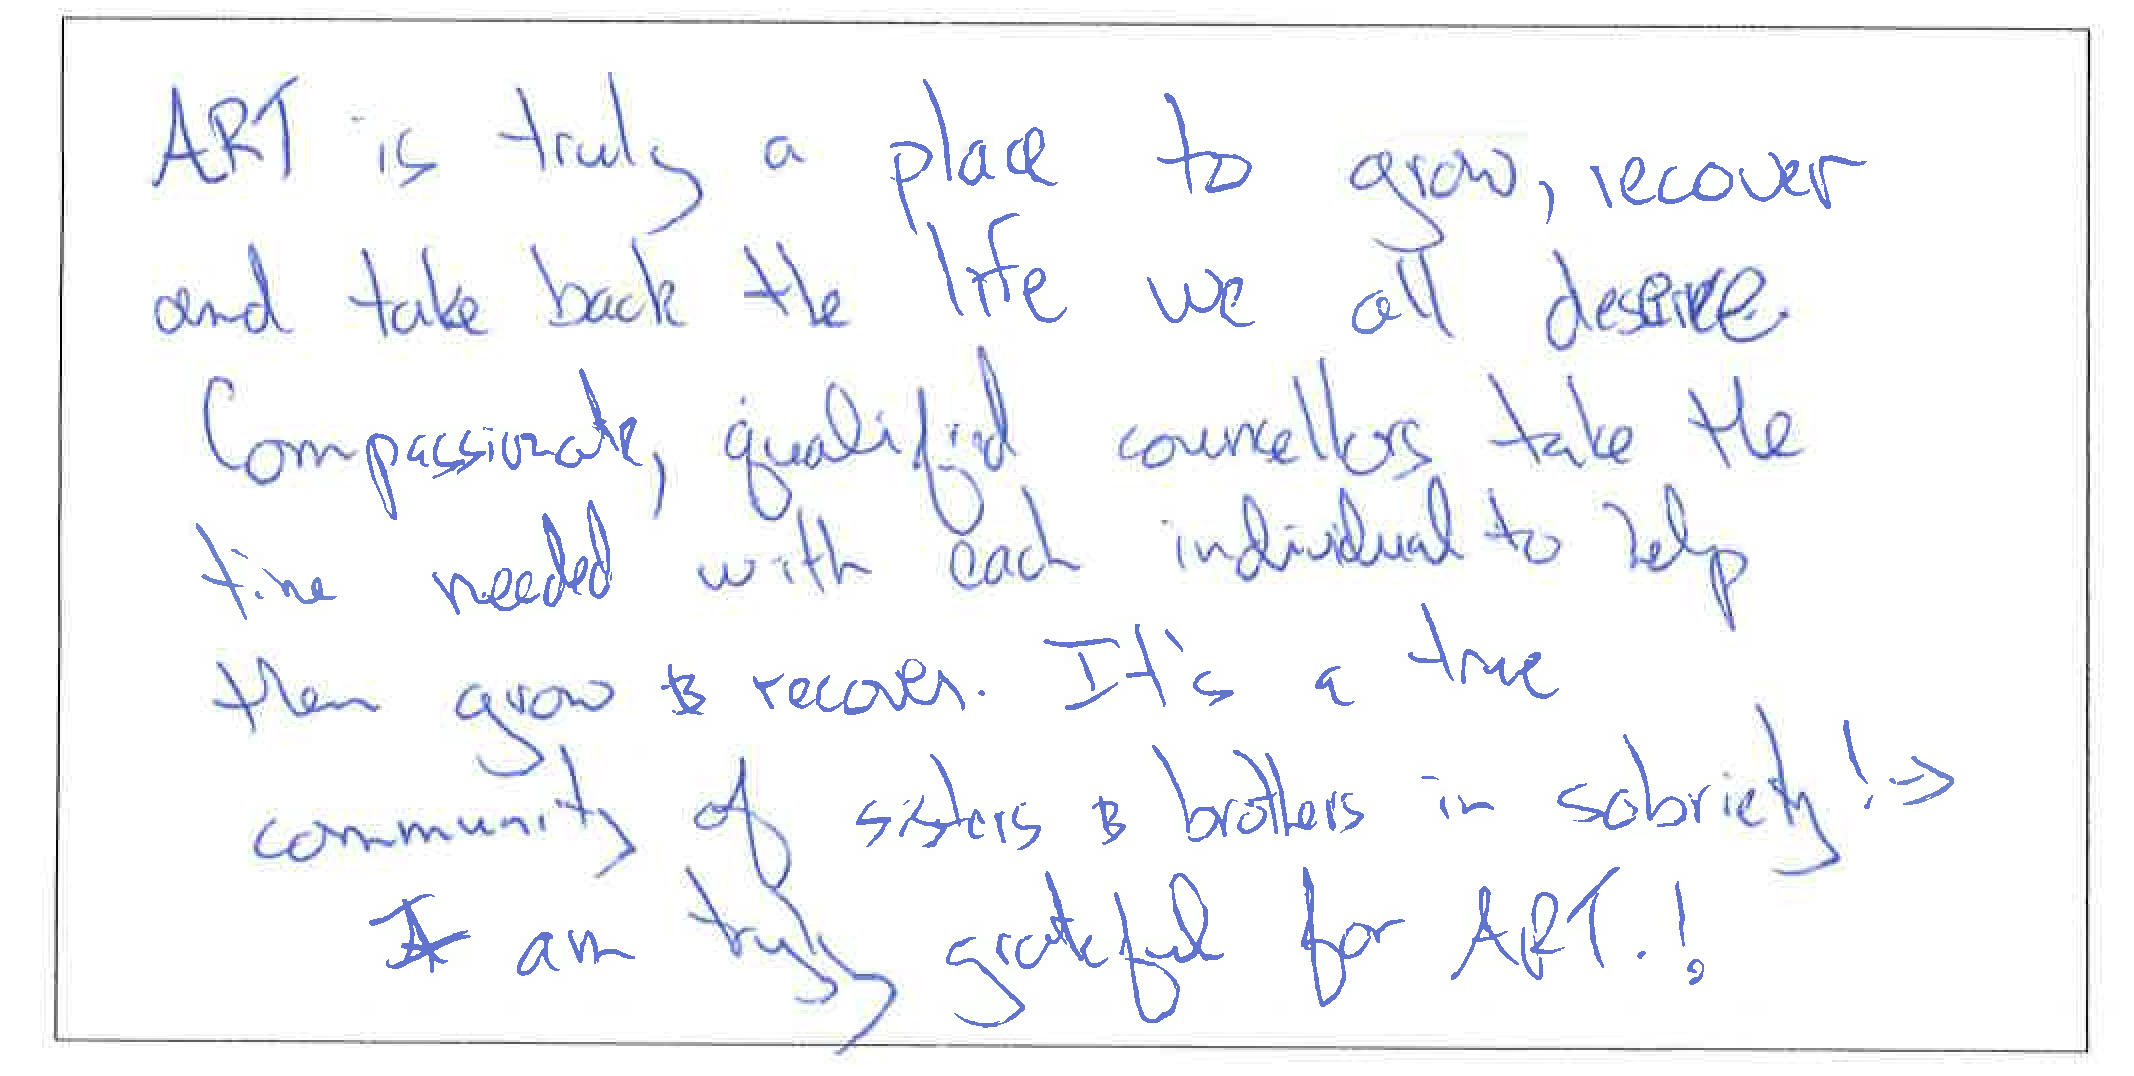 ART is truly a place to grow, recover
and take back the life we all deserve.
Compassionate, qualified councellors take the
time needed with each individual to help
them grow & recover. It's a true
community of sisters & brothers in sobriety! →
I am truly grateful for ART.!